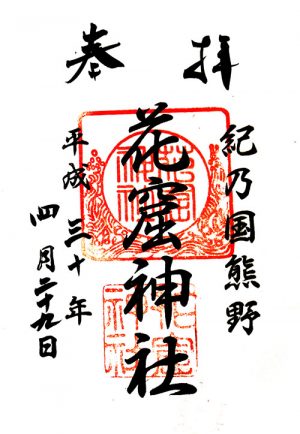 奉拝
紀乃国熊野
花窟神社
平成三十年
四月二十九日